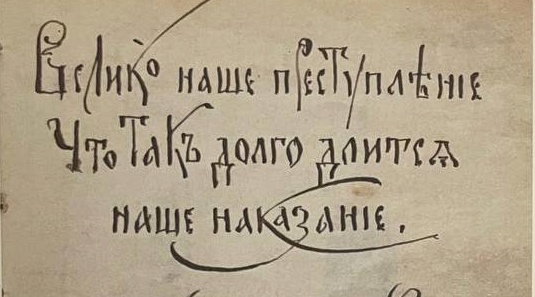 Велико наше преступлѣніе
Что такъ долго длитсѧ
наше наказаніе.